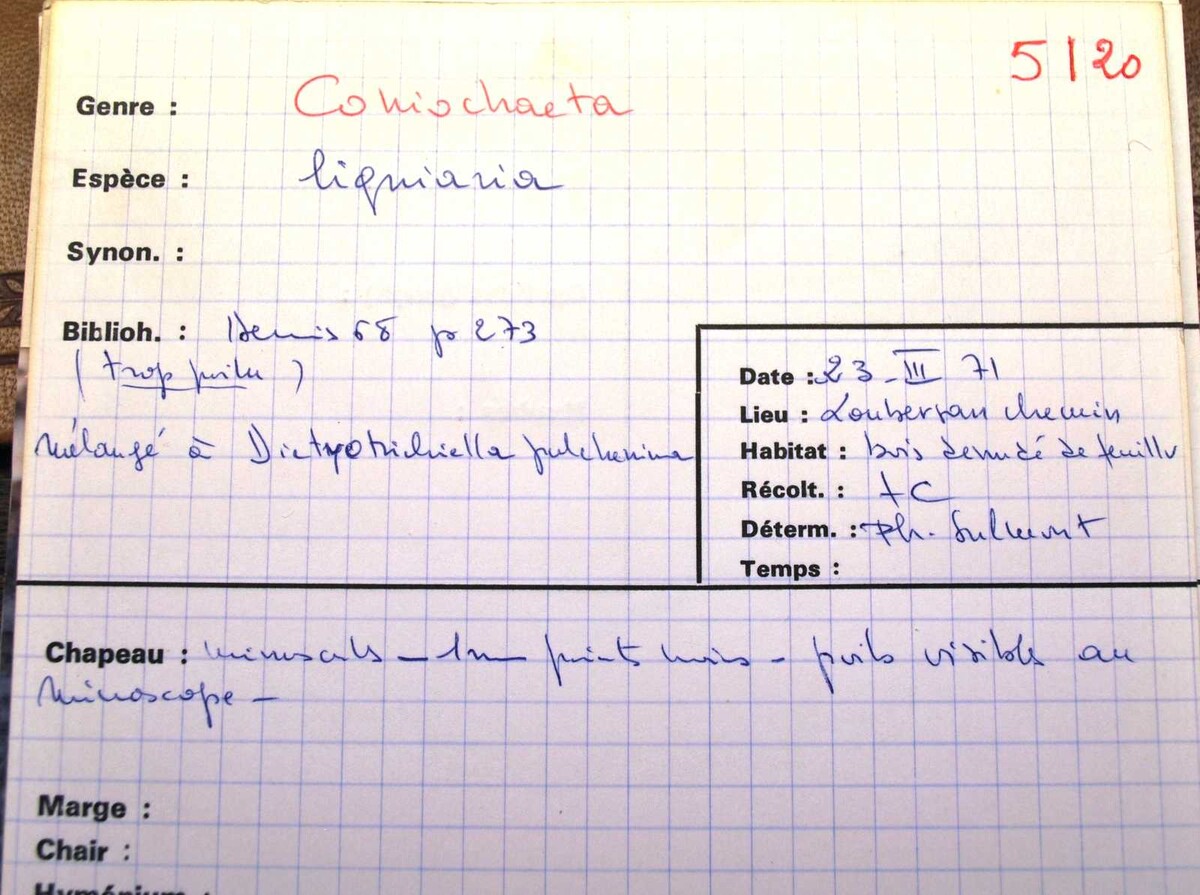 5120
Genre : Coniochaeta
Espèce : ligniaria
Synon. :
Biblioh. : Dennis 68 p 273
(trop poilu)
Mélangé à Dictyotrichiella pulcherrima
Date : 23 - III 71
Lieu : Loubersan chemin
Habitat : bois denudé de feuillu
Récolt. : +C
Déterm. : Ph.
Temps :
Chapeau : minuscules - 1mm points noirs - poils visibles au
microscope -
Marge :
Chair :
Hyménium :